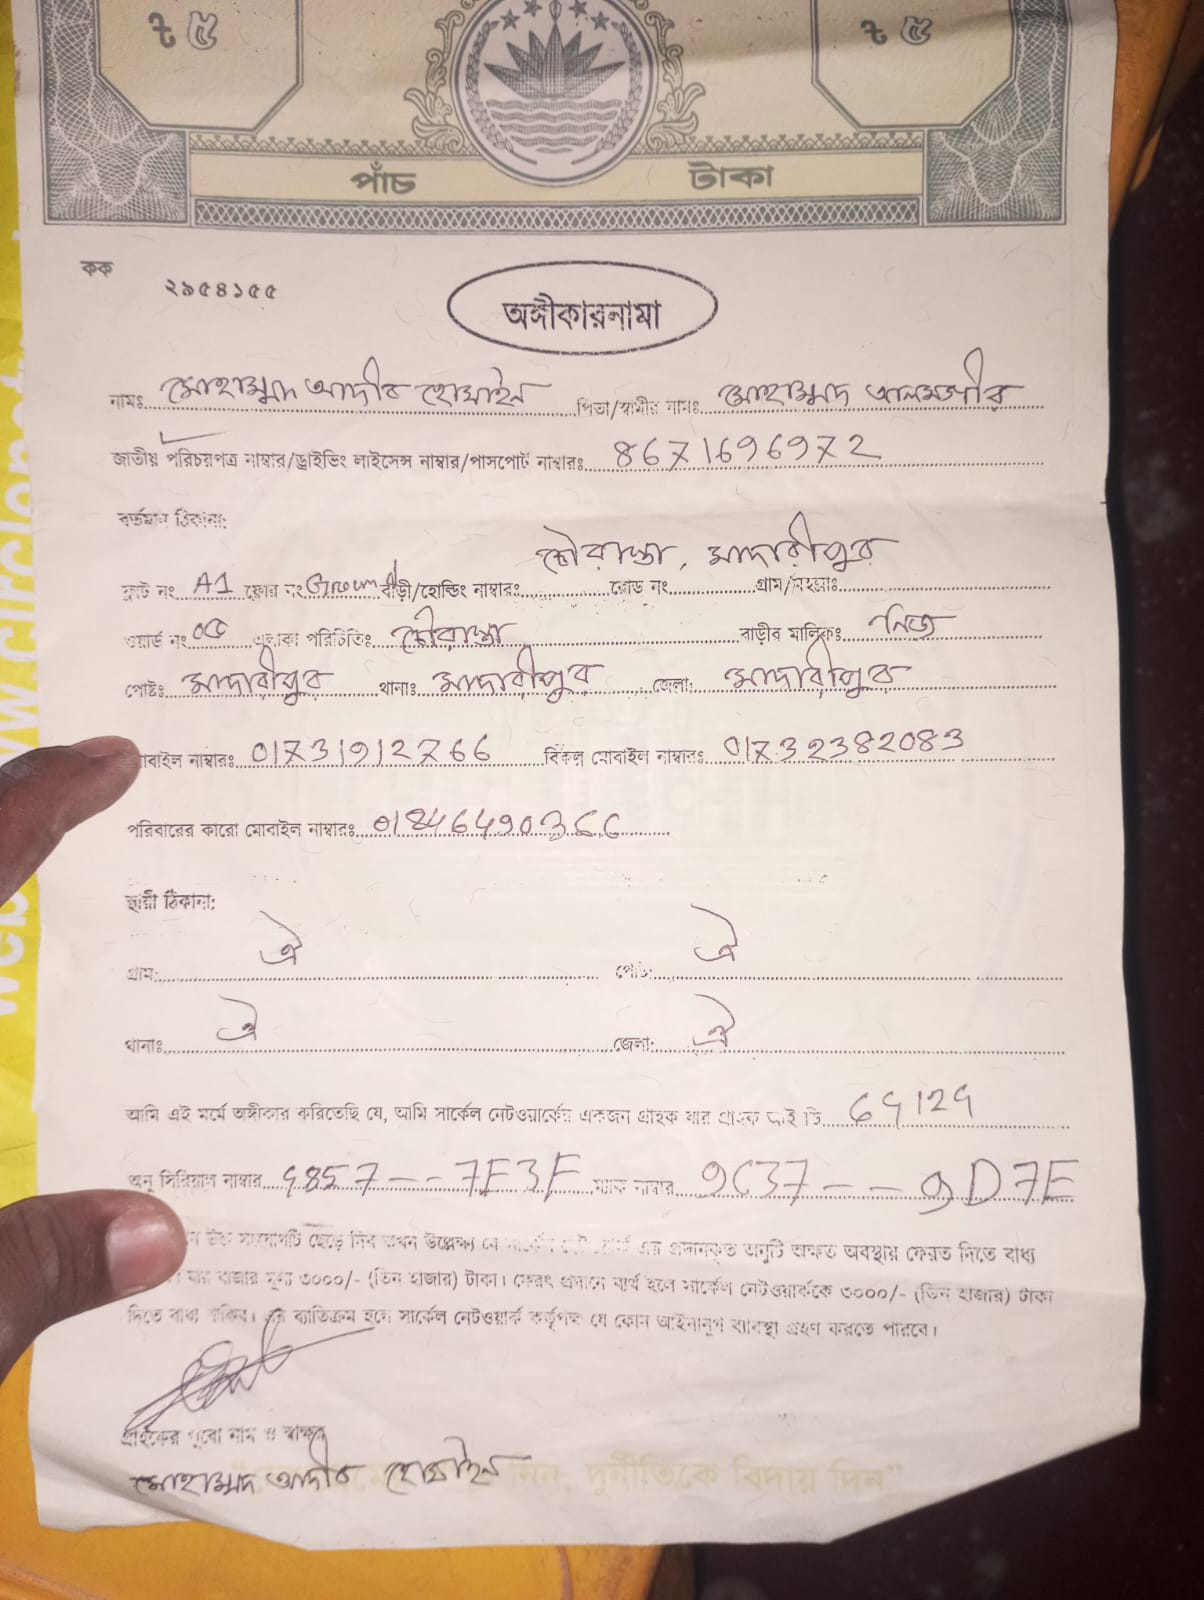 ৳ ৫ ৳ ৫
পাঁচ টাকা
কক
২৯৫৪১৫৫
অঙ্গীকারনামা
নামঃ মোহাম্মদ আদীব হোসাইন পিতা/স্বামীর নামঃ মোহাম্মদ আলমগীর
জাতীয় পরিচয়পত্র নাম্বার/ড্রাইভিং লাইসেন্স নাম্বার/পাসপোর্ট নাম্বারঃ 8671696972
বর্তমান ঠিকানা:
চৌরাস্তা, মাদারীপুর
ফ্লাট নং A1 ফ্লোর নং Ground বাড়ী/হোল্ডিং নাম্বারঃ রোড নং গ্রাম/মহল্লাঃ
ওয়ার্ড নং ০৫ এলাকা পরিচিতিঃ চৌরাস্তা বাড়ীর মালিকঃ নিজ
পোষ্টঃ মাদারীপুর থানাঃ মাদারীপুর জেলা: মাদারীপুর
মোবাইল নাম্বারঃ 01731912766 বিকল্প মোবাইল নাম্বারঃ 01732382083
পরিবারের কারো মোবাইল নাম্বারঃ
স্থায়ী ঠিকানা:
গ্রাম: ঐ পোষ্ট: ঐ
থানাঃ ঐ জেলা: ঐ
আমি এই মর্মে অঙ্গীকার করিতেছি যে, আমি সার্কেল নেটওয়ার্কের একজন গ্রাহক যার গ্রাহক আই ডি
অনু সিরিয়াল নাম্বার 4857--7E3F ম্যাক নাম্বার 9C37--9D7E
উক্ত সংযোগটি ছেড়ে দিব তখন উল্লেক্ষ্য যে সার্কেল এর প্রদানকৃত অনুটি অক্ষত অবস্থায় ফেরত দিতে বাধ্য
যার বাজার মূল্য ৩০০০/- (তিন হাজার) টাকা। ফেরৎ প্রদানে ব্যর্থ হলে সার্কেল নেটওয়ার্ককে ৩০০০/- (তিন হাজার) টাকা
দিতে বাধ্য থাকিব। এর ব্যাতিক্রম হলে সার্কেল নেটওয়ার্ক কর্তৃপক্ষ যে কোন আইনানুগ ব্যাবস্থা গ্রহণ করতে পারবে।
গ্রাহকের পুরো নাম ও স্বাক্ষর
মোহাম্মদ আদীব হোসাইন
দিন, দুর্নীতিকে বিদায় দিন"